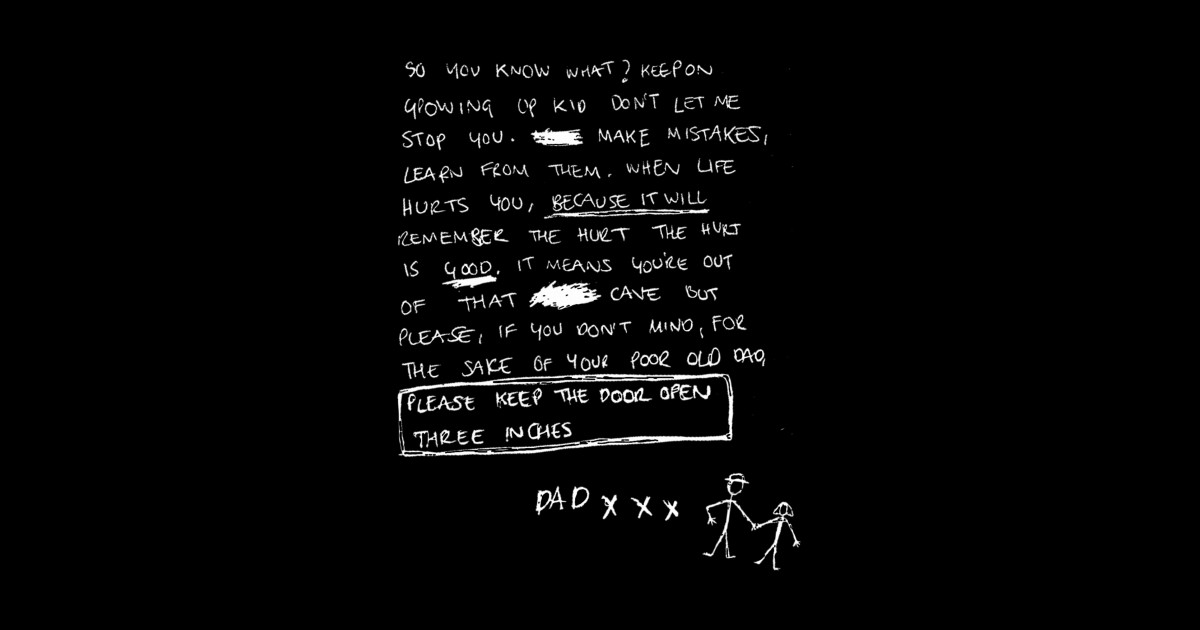 SO YOU KNOW WHAT? KEEP ON
GROWING UP KID DON'T LET ME
STOP YOU. MAKE MISTAKES,
LEARN FROM THEM. WHEN LIFE
HURTS YOU, BECAUSE IT WILL
REMEMBER THE HURT THE HURT
IS GOOD. IT MEANS YOU'RE OUT
OF THAT CAVE BUT
PLEASE, IF YOU DON'T MIND, FOR
THE SAKE OF YOUR POOR OLD DAD,
PLEASE KEEP THE DOOR OPEN
THREE INCHES
DAD X X X